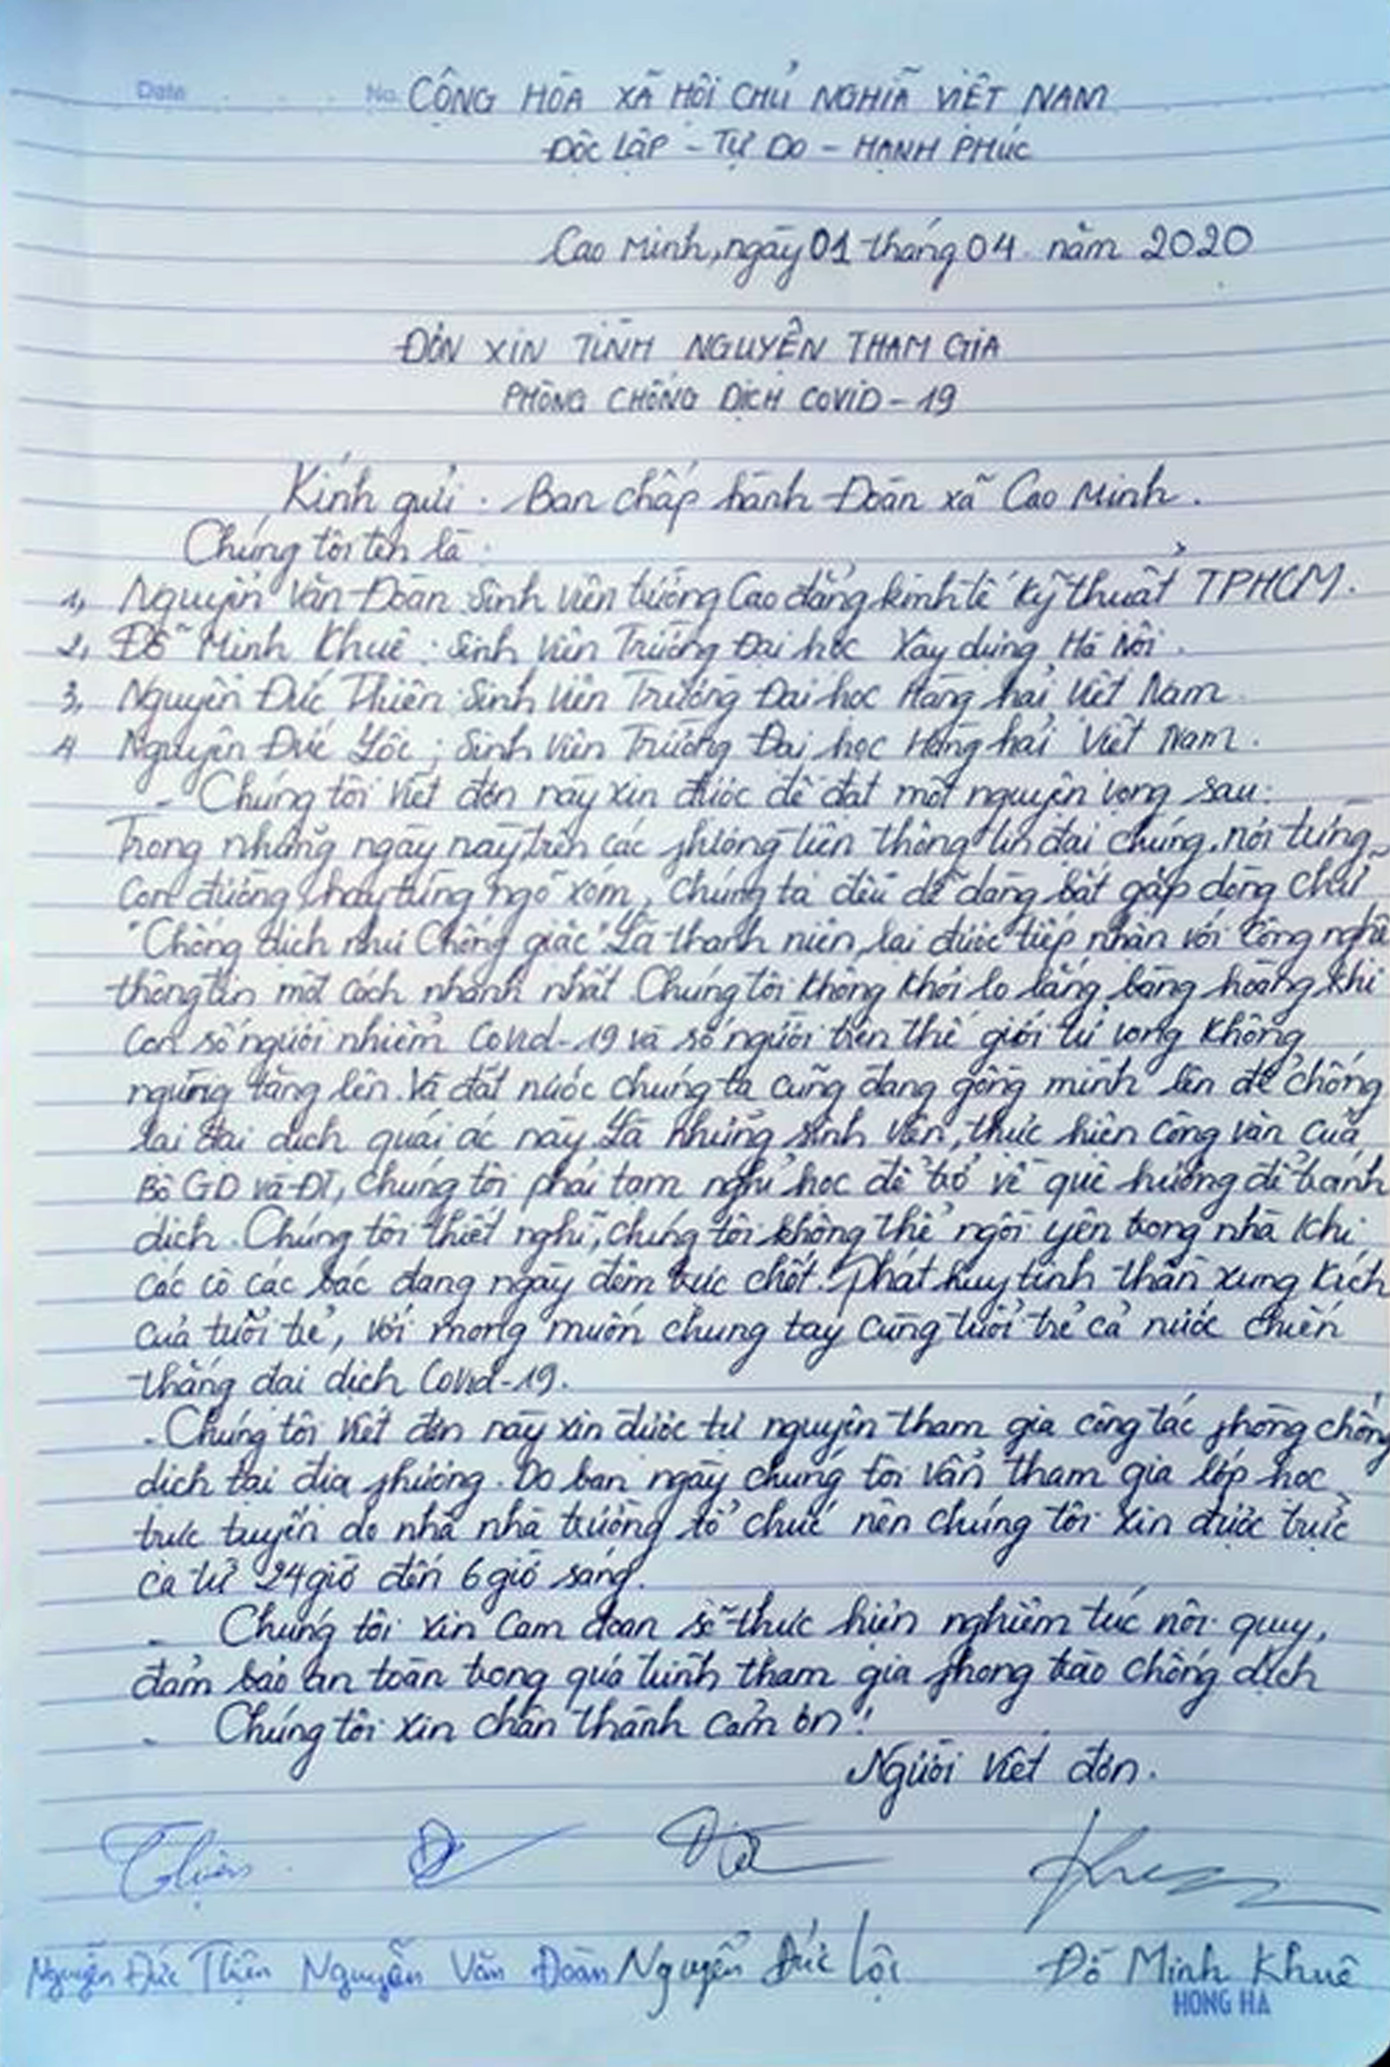 Date No.
CỘNG HÒA XÃ HỘI CHỦ NGHĨA VIỆT NAM
ĐỘC LẬP - TỰ DO - HẠNH PHÚC
Cao Minh, ngày 01 tháng 04 năm 2020
ĐƠN XIN TÌNH NGUYỆN THAM GIA
PHÒNG CHỐNG DỊCH COVID-19
Kính gửi: Ban chấp hành Đoàn xã Cao Minh.
Chúng tôi tên là:
1, Nguyễn Văn Đoàn: Sinh viên trường Cao đẳng kinh tế kỹ thuật TPHCM.
2, Đỗ Minh Khuê: Sinh viên Trường Đại học Xây dựng Hà Nội.
3, Nguyễn Đức Thiện: Sinh viên Trường Đại học Hàng hải Việt Nam.
4 Nguyễn Đức Lộc; Sinh viên Trường Đại học Hàng hải Việt Nam.
- Chúng tôi viết đơn này xin được đề đạt một nguyện vọng sau:
Trong những ngày này, trên các phương tiện thông tin đại chúng, nơi từng
con đường hay từng ngõ xóm, chúng ta đều dễ dàng bắt gặp dòng chữ
"Chống dịch như Chống giặc". Là thanh niên, lại được tiếp nhận với công nghệ
thông tin một cách nhanh nhất. Chúng tôi không khỏi lo lắng, bàng hoàng khi
con số người nhiễm Covid-19 và số người trên thế giới tử vong không
ngừng tăng lên. Và đất nước chúng ta cũng đang gồng mình lên để chống
lại đại dịch quái ác này. Là những sinh viên, thực hiện công văn của
Bộ GD và ĐT, chúng tôi phải tạm nghỉ học để trở về quê hương để tránh
dịch. Chúng tôi thiết nghĩ, chúng tôi không thể ngồi yên trong nhà khi
các cô các bác đang ngày đêm trực chốt. Phát huy tinh thần xung kích
của tuổi trẻ, với mong muốn chung tay cùng tuổi trẻ cả nước chiến
thắng đại dịch Covid-19.
- Chúng tôi viết đơn này xin được tự nguyện tham gia công tác phòng chống
dịch tại địa phương. Do ban ngày chúng tôi vẫn tham gia lớp học
trực tuyến do nhà nhà trường tổ chức nên chúng tôi xin được trực
ca từ 24 giờ đến 6 giờ sáng.
- Chúng tôi xin cam đoan sẽ thực hiện nghiêm túc nội quy,
đảm bảo an toàn trong quá trình tham gia phong trào chống dịch
- Chúng tôi xin chân thành cảm ơn!
Người viết đơn.
Thiện Đ Khuê
Nguyễn Đức Thiện Nguyễn Văn Đoàn Nguyễn Đức Lộc Đỗ Minh Khuê
HONG HA